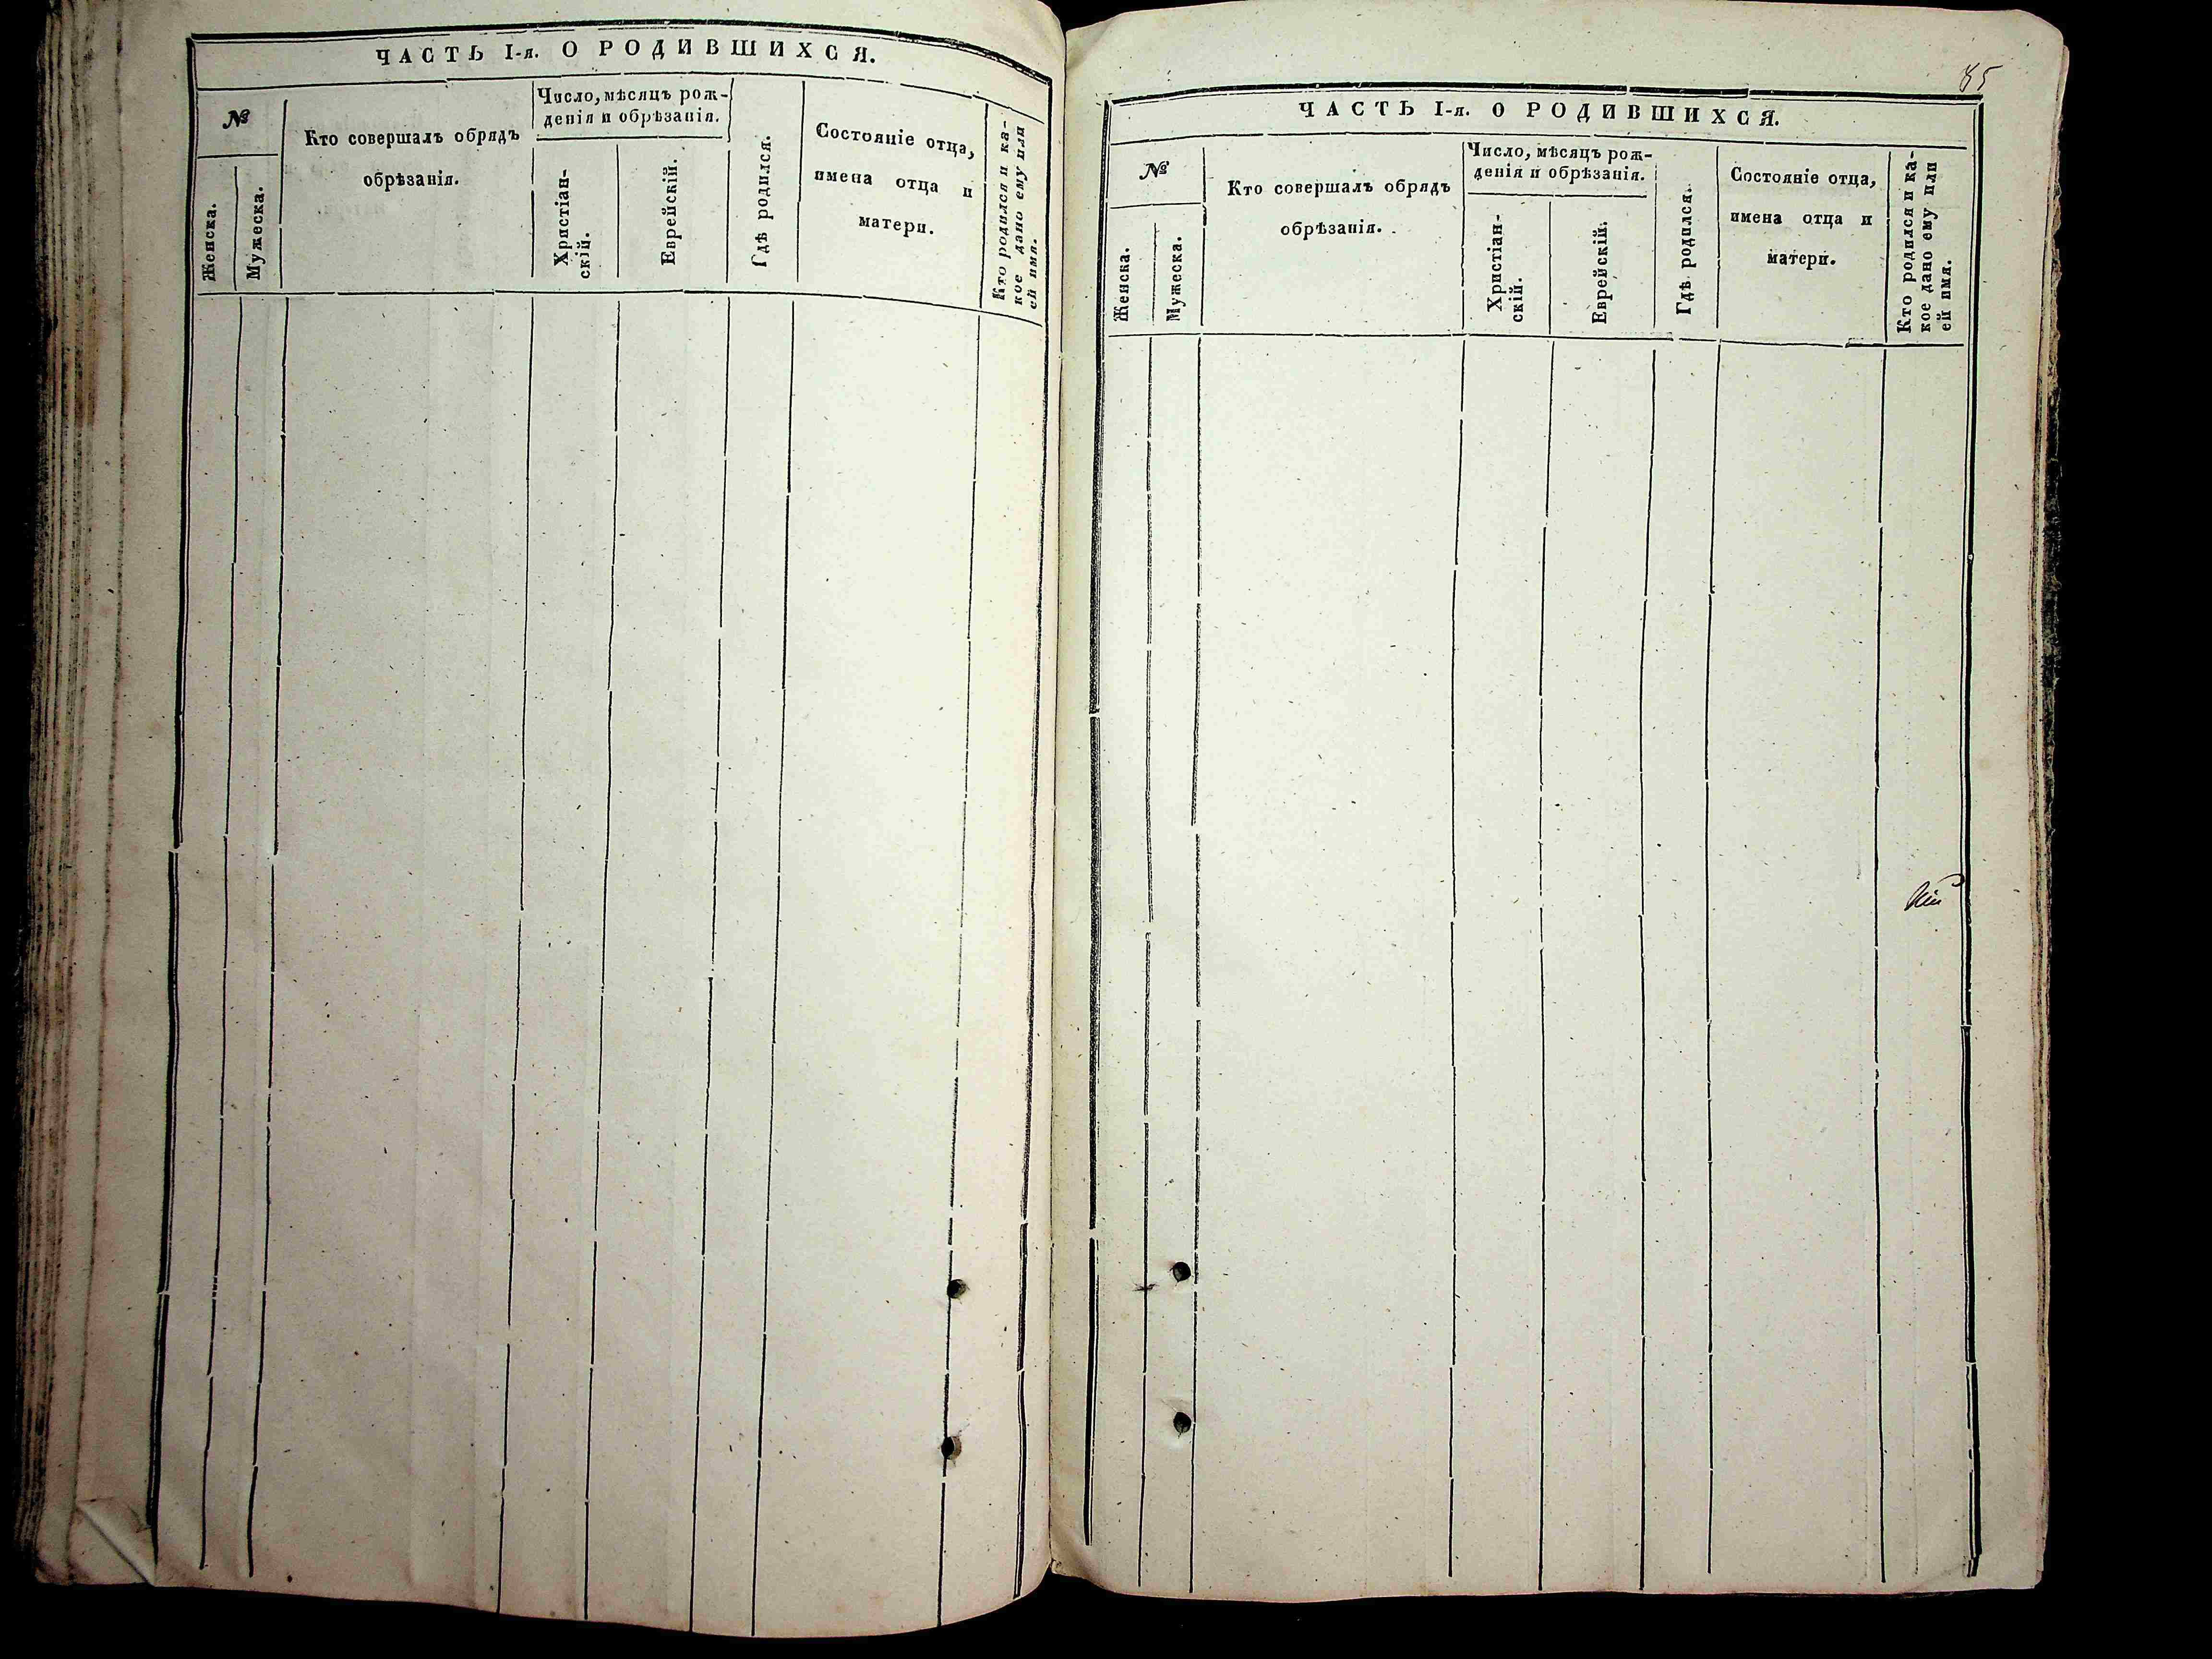 ЧАСТЬ I-я. О РОДИВШИХСЯ.
№
Женска.
Мужеска.
Кто совершалъ обрядъ
обрѣзанія.
Число, мѣсяцъ рож-
денія и обрѣзанія.
Христіан-
скій.
Еврейскій.
Гдѣ родился.
Состояніе отца,
имена отца и
матери.
Кто родился и ка-
кое дано ему или
ей имя.
85
ЧАСТЬ I-я. О РОДИВШИХСЯ.
№
Женска.
Мужеска.
Кто совершалъ обрядъ
обрѣзанія.
Число, мѣсяцъ рож-
денія и обрѣзанія.
Христіан-
скій.
Еврейскій.
Гдѣ родился.
Состояніе отца,
имена отца и
матери.
Кто родился и ка-
кое дано ему или
ей имя.